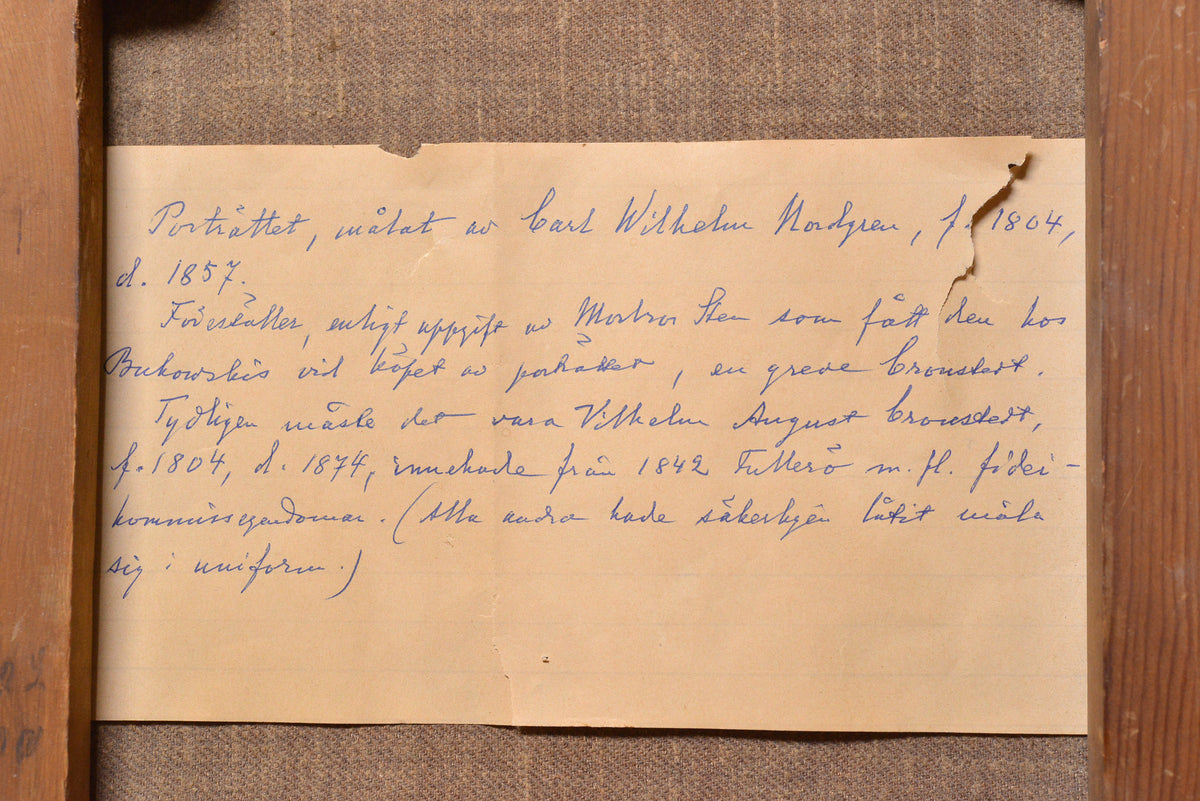 Porträttet, målat av Carl Wilhelm Nordgren, f. 1804,
d. 1857.
Föreställer, enligt uppgift av Morbror Sten som fått den hos
Bukowskis vid köpet av porträttet, en greve Cronstedt.
Tydligen måste det vara Vilhelm August Cronstedt,
f. 1804, d. 1874, innehade från 1842 Fullerö m. fl. fidei-
kommissegendomar. (Alla andra hade säkerligen låtit måla
sig i uniform.)